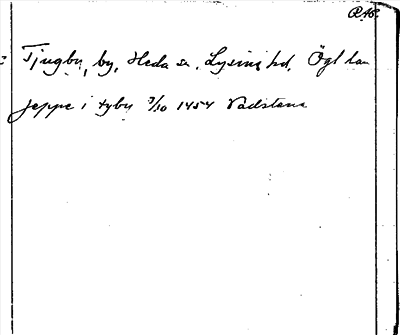 RAp.
Tjugby, by, Heda sn. Lysings hd. Ögl län
jeppe i tyby 3/10 1454 Vadstena